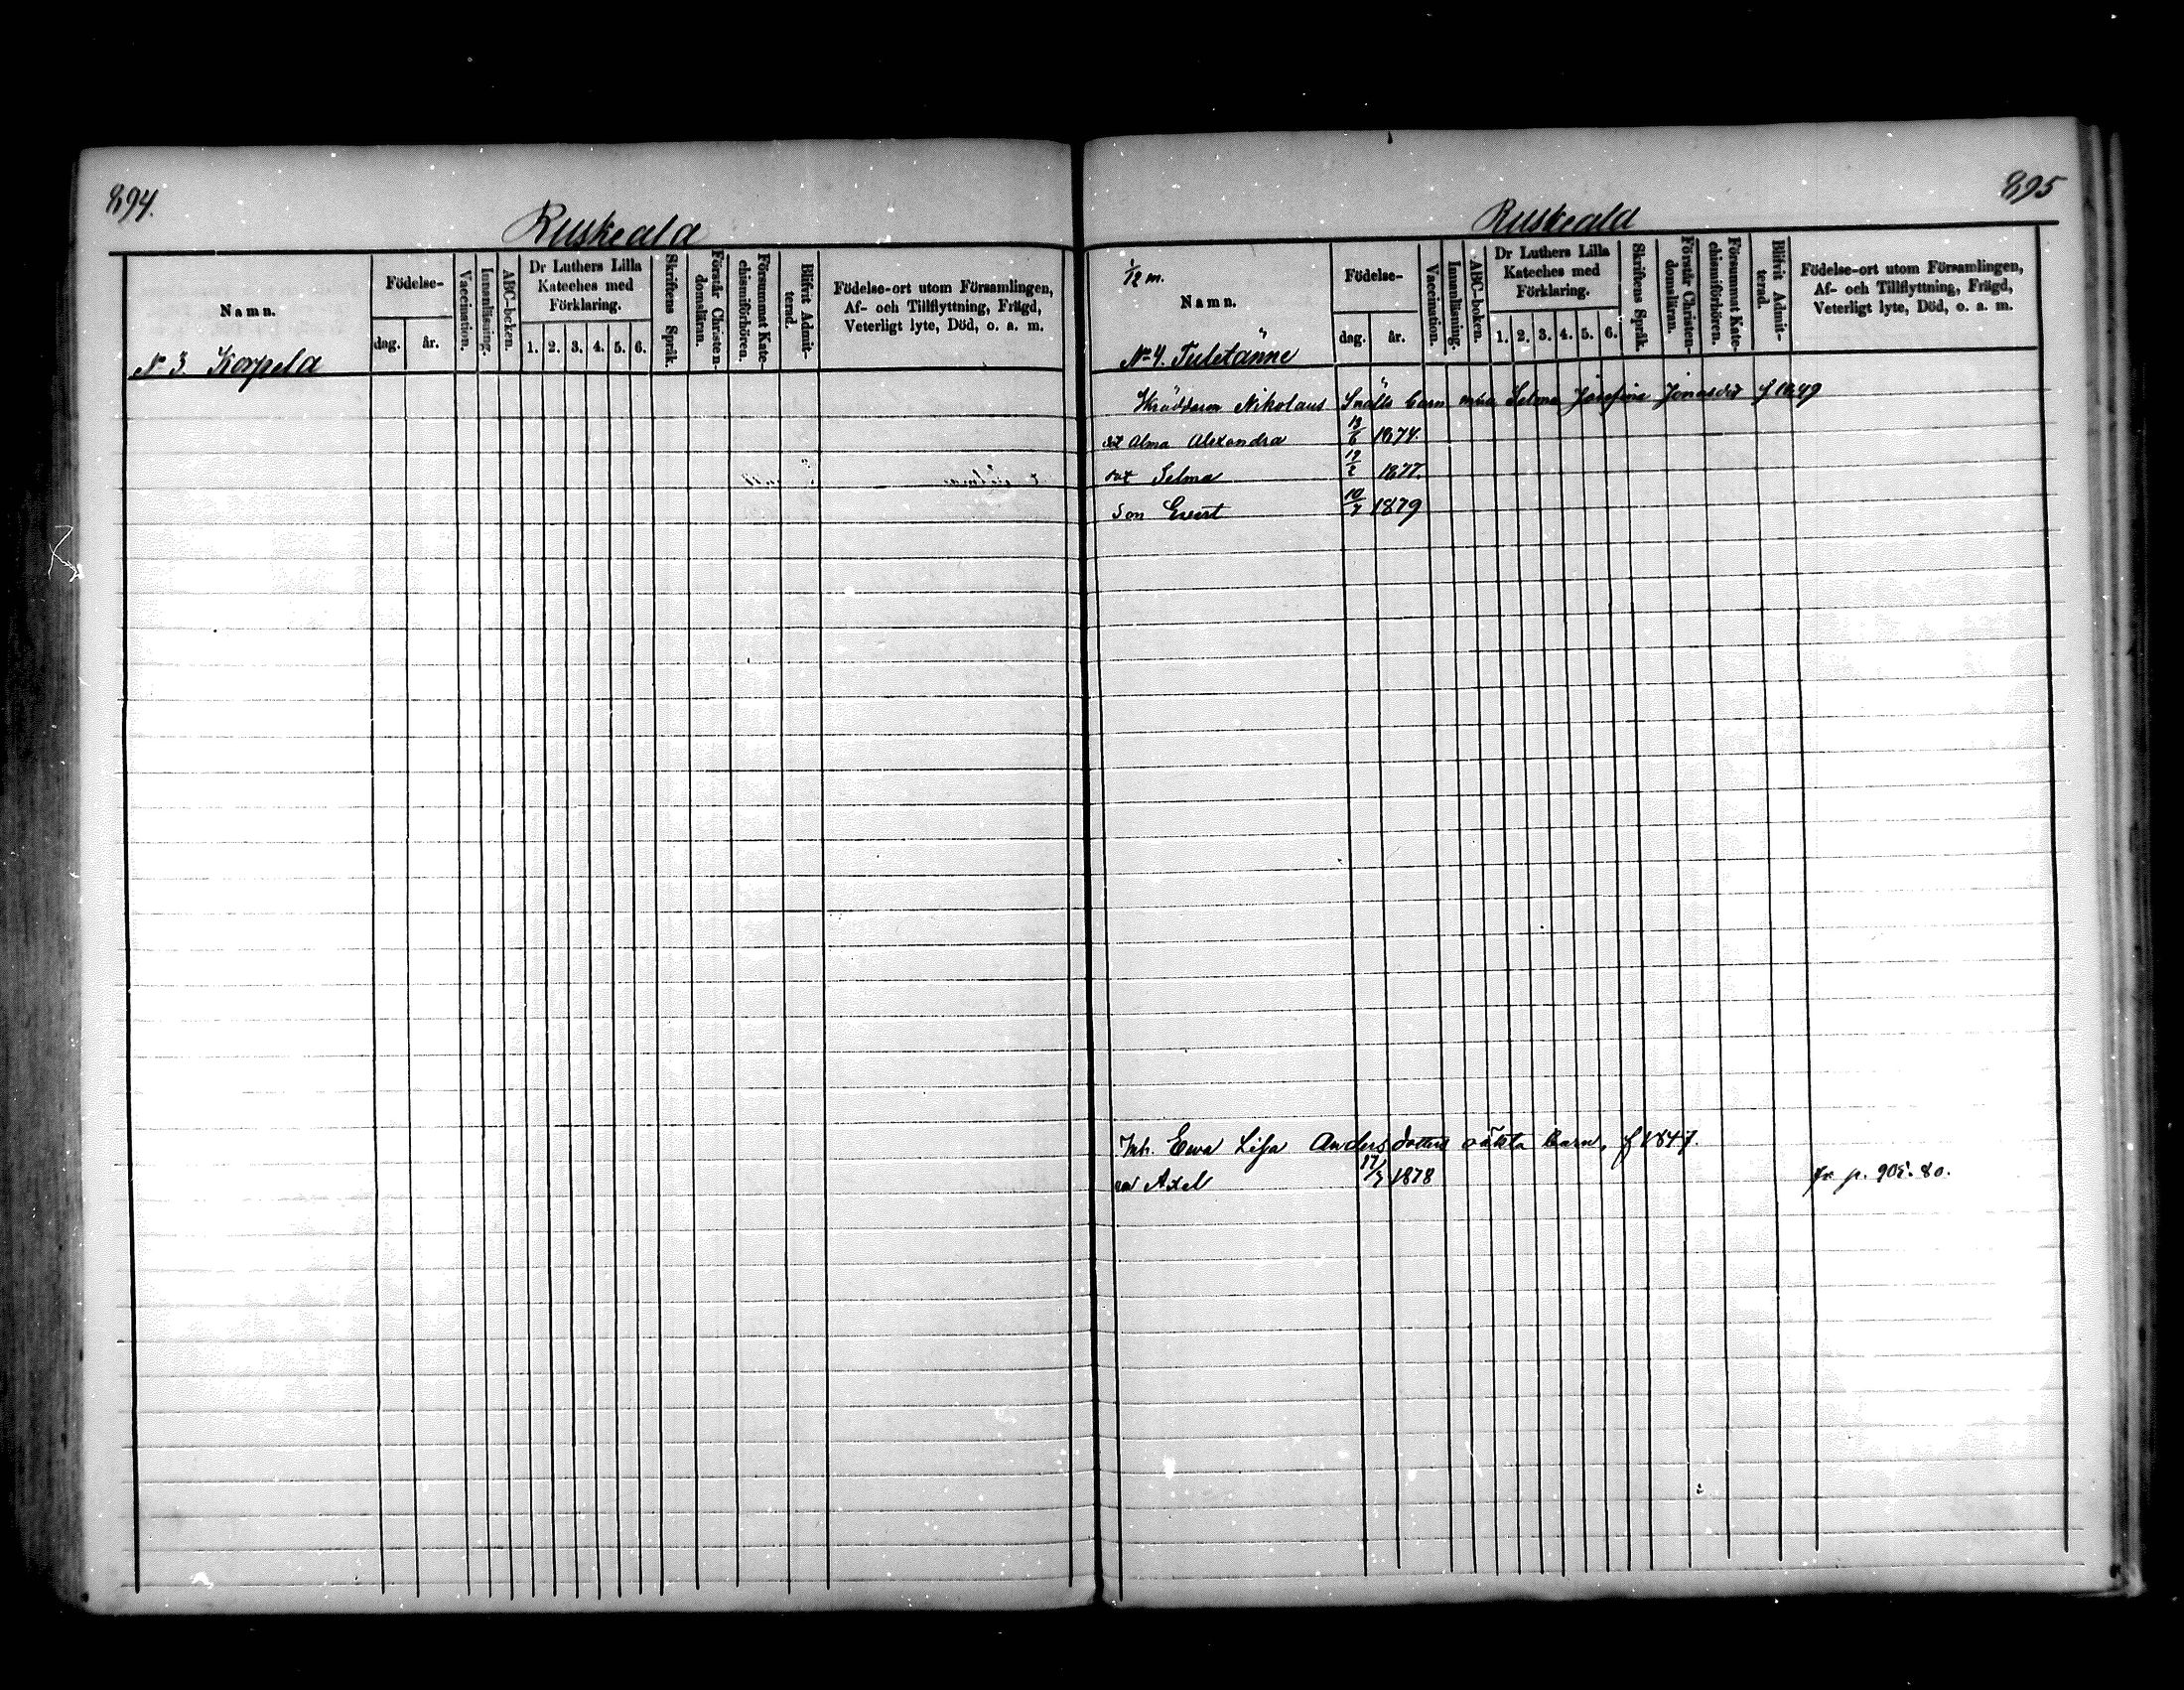 894.
Ruskeala
Namn.
Födelse-
dag.
år.
Vaccination.
Innanläsning.
ABC-boken.
Dr Luthers Lilla
Kateches med
Förklaring.
1. 2. 3. 4. 5. 6.
Skriftens Språk.
Förstår Christen-
domsläran.
Försummat Kate-
chismiförhören.
Blifvit Admit-
terad.
Födelse-ort utom Församlingen,
Af- och Tillflyttning, Frägd,
Veterligt lyte, Död, o. a. m.
No 3. Korpela
895
Ruskeala
1/12 m.
Namn.
Födelse-
dag.
år.
Vaccination.
Innanläsning.
ABC-boken.
Dr Luthers Lilla
Kateches med
Förklaring.
1. 2. 3. 4. 5. 6.
Skriftens Språk.
Förstår Christen-
domsläran.
Försummat Kate-
chismiförhören.
Blifvit Admit-
terad.
Födelse-ort utom Församlingen,
Af- och Tillflyttning, Frägd,
Veterligt lyte, Död, o. a. m.
No 4. Tuletänne
Skräddaren Nikolaus Snälls barn m hu Selma Josefina Jonasdr f 1849
dot Alma Alexandra 13/6 1874.
dot Selma 19/2 1877.
Son Evert 10/7 1879
Inh. Ewa Lisa Andersdotters oäkta Barn, f 1847.
Axel 17/7 1878 fr p. 905. 80.